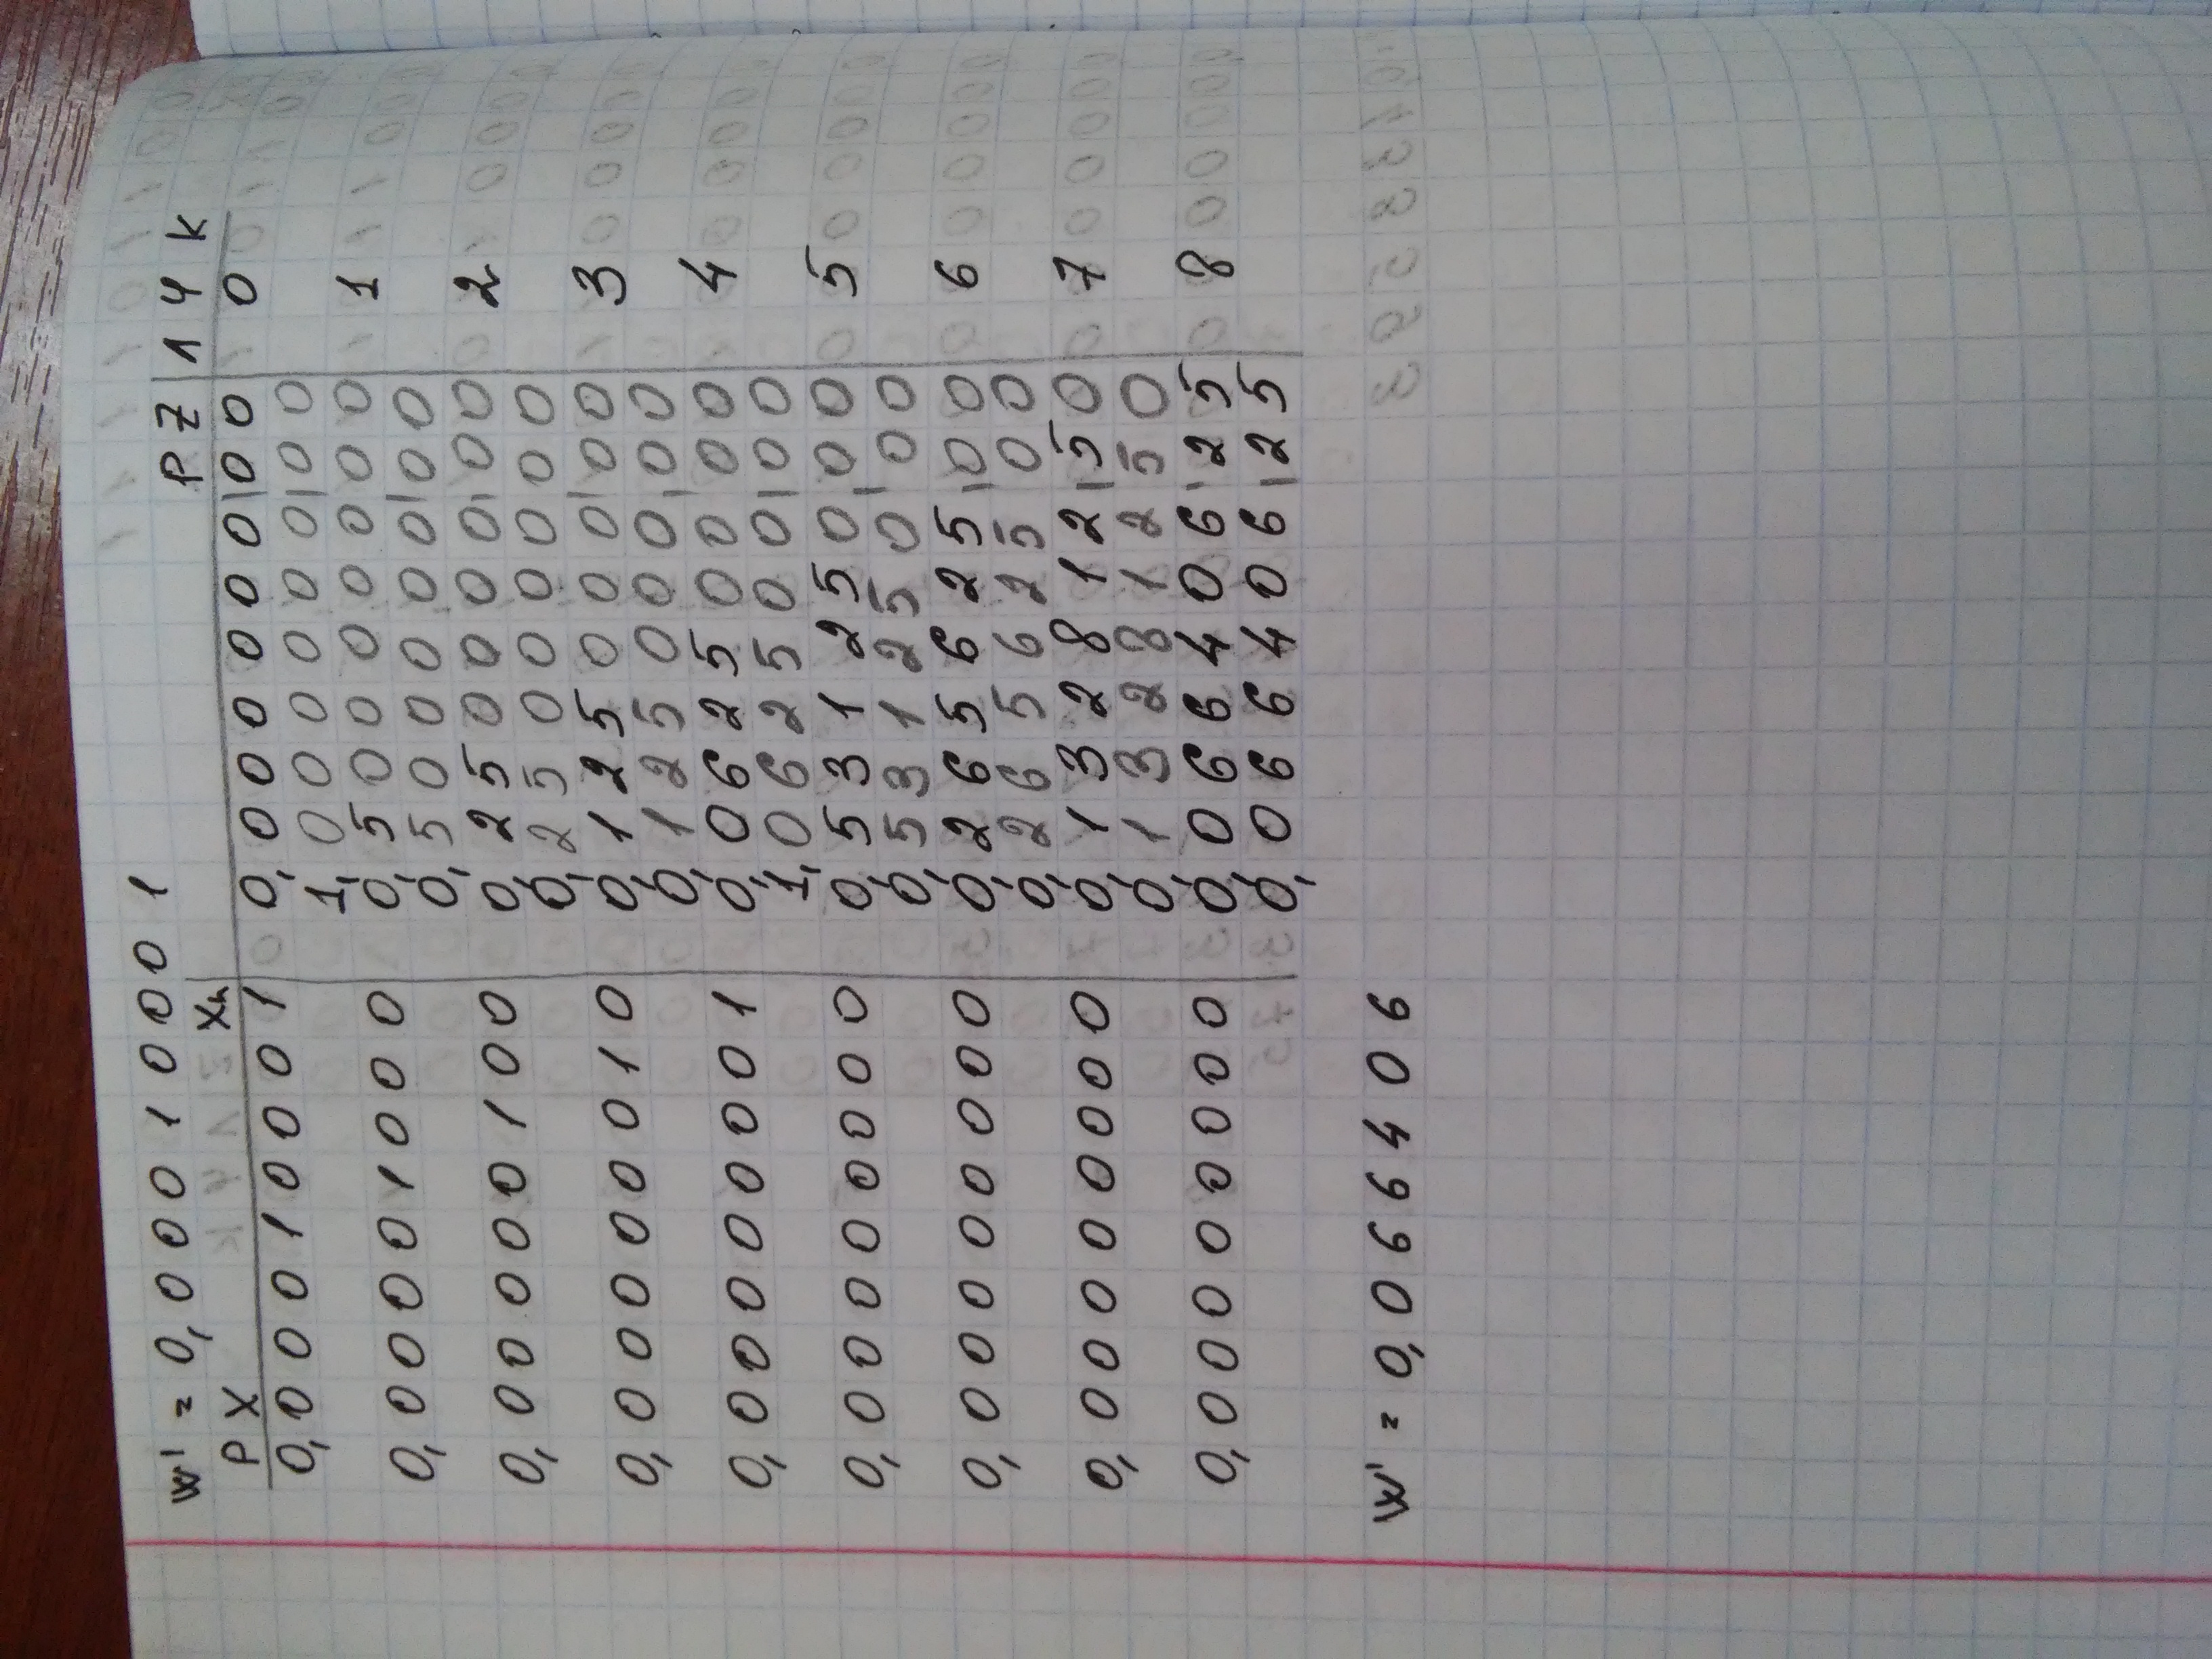 w' = 0,00010001
PX Xn PZ 1 Ч К
0,00010001 0,00000000 0
1,00000000
0,00001000 0,50000000 1
0,50000000
0,00000100 0,25000000 2
0,25000000
0,00000010 0,12500000 3
0,12500000
0,00000001 0,06250000 4
1,06250000
0,00000000 0,53125000 5
0,53125000
0,00000000 0,26562500 6
0,26562500
0,00000000 0,13281250 7
0,13281250
0,00000000 0,06640625 8
0,06640625
W' = 0,066406